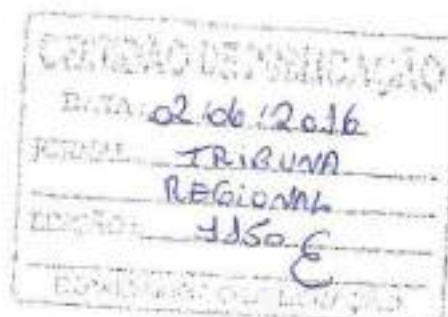 CERTIDÃO DE PUBLICAÇÃO
DATA: 02/06/2016
JORNAL TRIBUNA
REGIONAL
EDIÇÃO: 1150